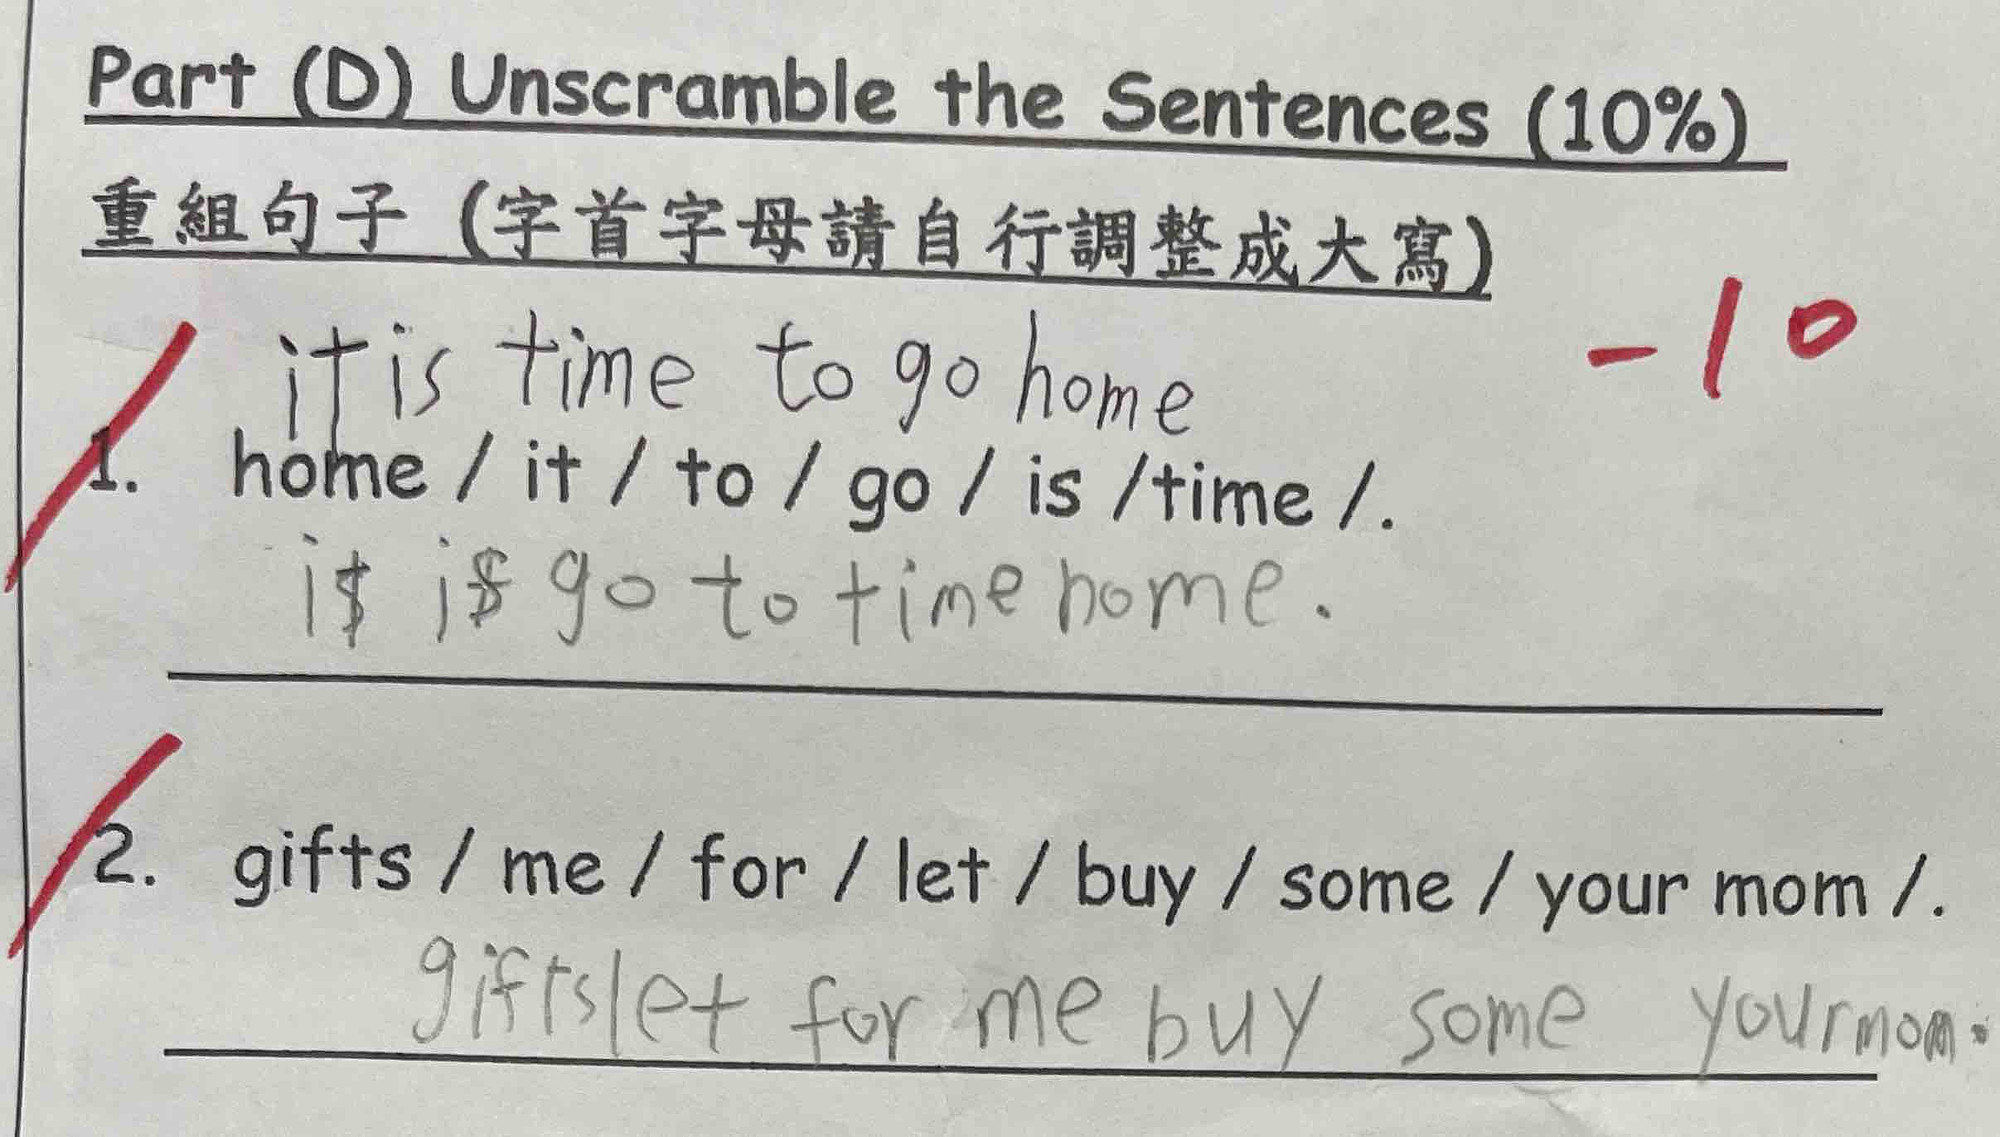 Part (D) Unscramble the Sentences (10%)
重組句子 (字首字母請自行調整成大寫)
-10
it is time to go home
1. home / it / to / go / is /time /.
is go to time home.
2. gifts / me / for / let / buy / some / your mom /.
gifts let for me buy some your mom.